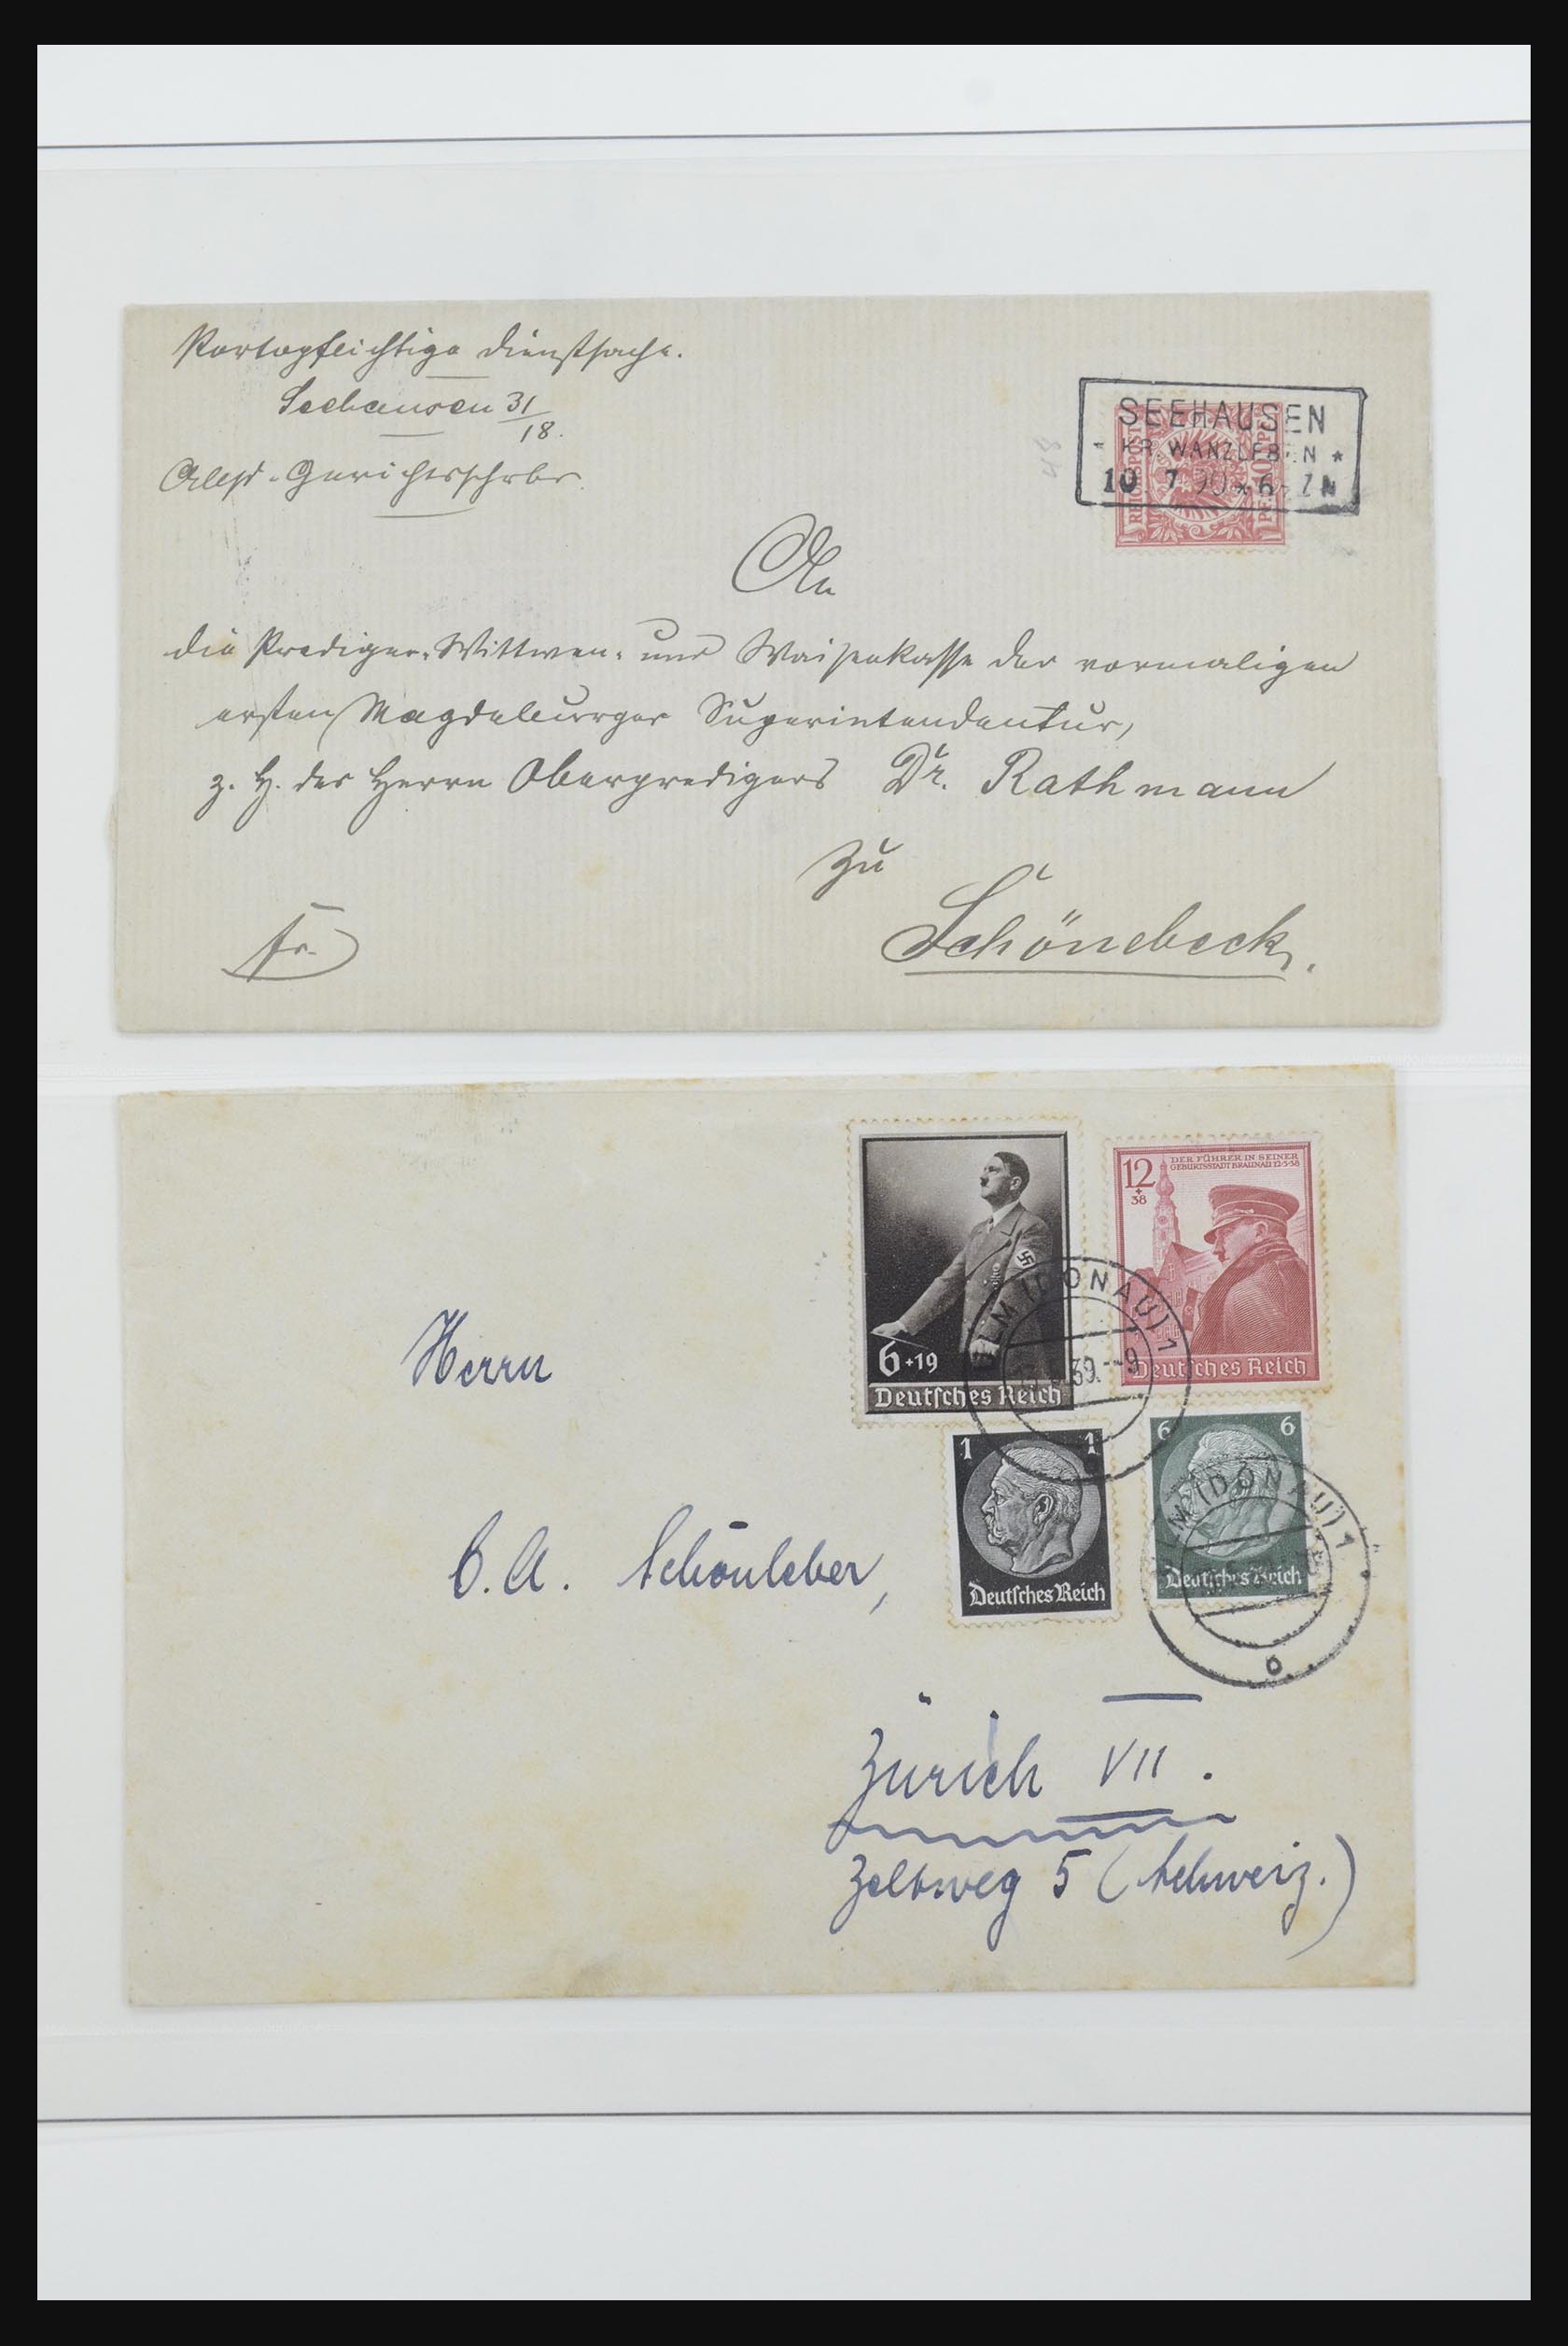 Portopflichtige Dienstsache.
Seehausen 31/18.
Gerichtsschrbr.
SEEHAUSEN
KR. WANZLEBEN *
10 7 90 * 6-7N
REICHSPOST
An
die Prediger-Wittwen- und Waisenkasse der vormaligen
ersten Magdeburger Superintendentur,
z. H. des Herrn Oberpredigers Dr. Rathmann
zu
Schönebeck.
fr.
6+19
Deutsches Reich
12+38
DER FÜHRER IN SEINER
GEBURTSSTADT BRAUNAU 12·3·38
Deutsches Reich
ULM (DONAU) 1
39.--9
1 1
Deutsches Reich
6 6
Deutsches Reich
ULM (DONAU) 1
Herrn
A. Schönleber,
Zürich VII.
Zeltweg 5 (Schweiz.)